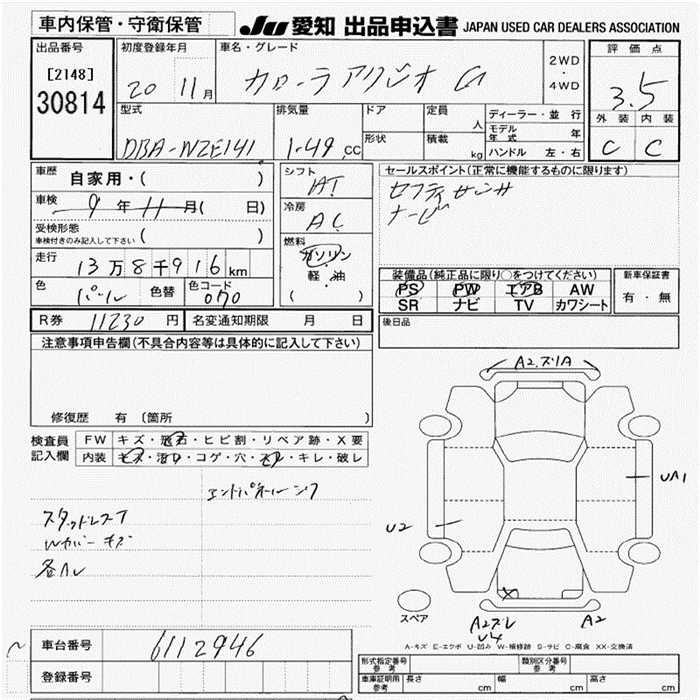 車内保管・守衛保管
JU 愛知 出品申込書 JAPAN USED CAR DEALERS ASSOCIATION
出品番号
[2148]
30814
初度登録年月
20 11月
車名・グレード
カローラアクシオ G
2WD
・
4WD
評価点
3.5
外装 内装
C C
型式
DBA-NZE141
排気量
1.49 CC
ドア
形状
定員
人
積載
kg
ディーラー・並行
モデル年式 年
ハンドル 左・右
車歴 自家用・( )
車検 9年11月( 日)
受検形態
車検付きのみ記入して下さい ( )
走行 13万8千916km
色 パール 色替 色コード 070
シフト
AT
冷房
AC
燃料
ガソリン
軽・油
( )
セールスポイント(正常に機能するものに限ります)
ナービ
装備品(純正品に限り○をつけてください)
PS PW エアB AW
SR ナビ TV カワシート
新車保証書
有・無
R券 11230円 名変通知期限 月 日
後日品
注意事項申告欄(不具合内容等は具体的に記入して下さい)
修復歴 有 (箇所 )
検査員
記入欄
FW キズ・飛石・ヒビ割・リペア跡・X要
内装 キズ・汚レ・コゲ・穴・スレ・キレ・破レ
スタッドレス
Wカバー キズ
各AL
A2.ズ1A
UA1
U2
A2ズレ
U4
A2
スペア
A-キズ E-エクボ U-凹み W-補修跡 S-サビ C-腐食 XX-交換済
車台番号 6112946
登録番号
形式指定番号 参考
類別区分番号 参考
車庫証明用 参考 長さ cm 幅 cm 高さ cm